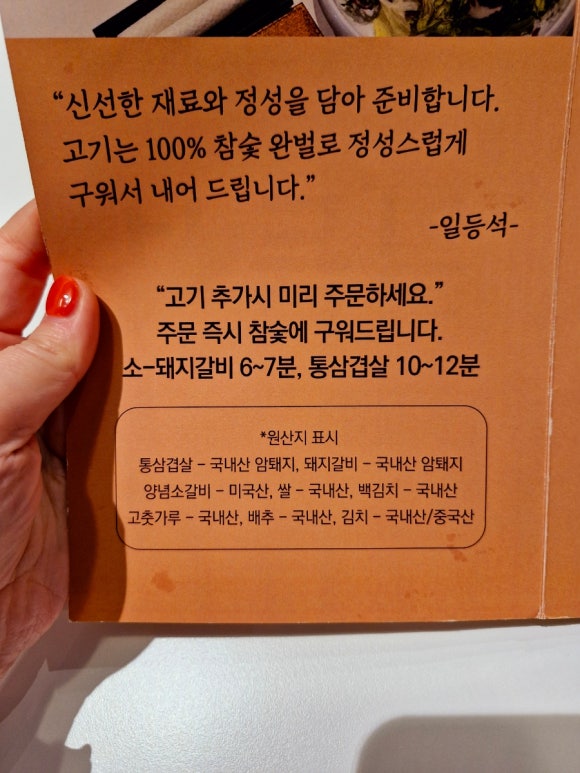 “신선한 재료와 정성을 담아 준비합니다.
고기는 100% 참숯 완벌로 정성스럽게
구워서 내어 드립니다.”
-일등석-
“고기 추가시 미리 주문하세요.”
주문 즉시 참숯에 구워드립니다.
소-돼지갈비 6~7분, 통삼겹살 10~12분
*원산지 표시
통삼겹살 - 국내산 암퇘지, 돼지갈비 - 국내산 암퇘지
양념소갈비 - 미국산, 쌀 - 국내산, 백김치 - 국내산
고춧가루 - 국내산, 배추 - 국내산, 김치 - 국내산/중국산